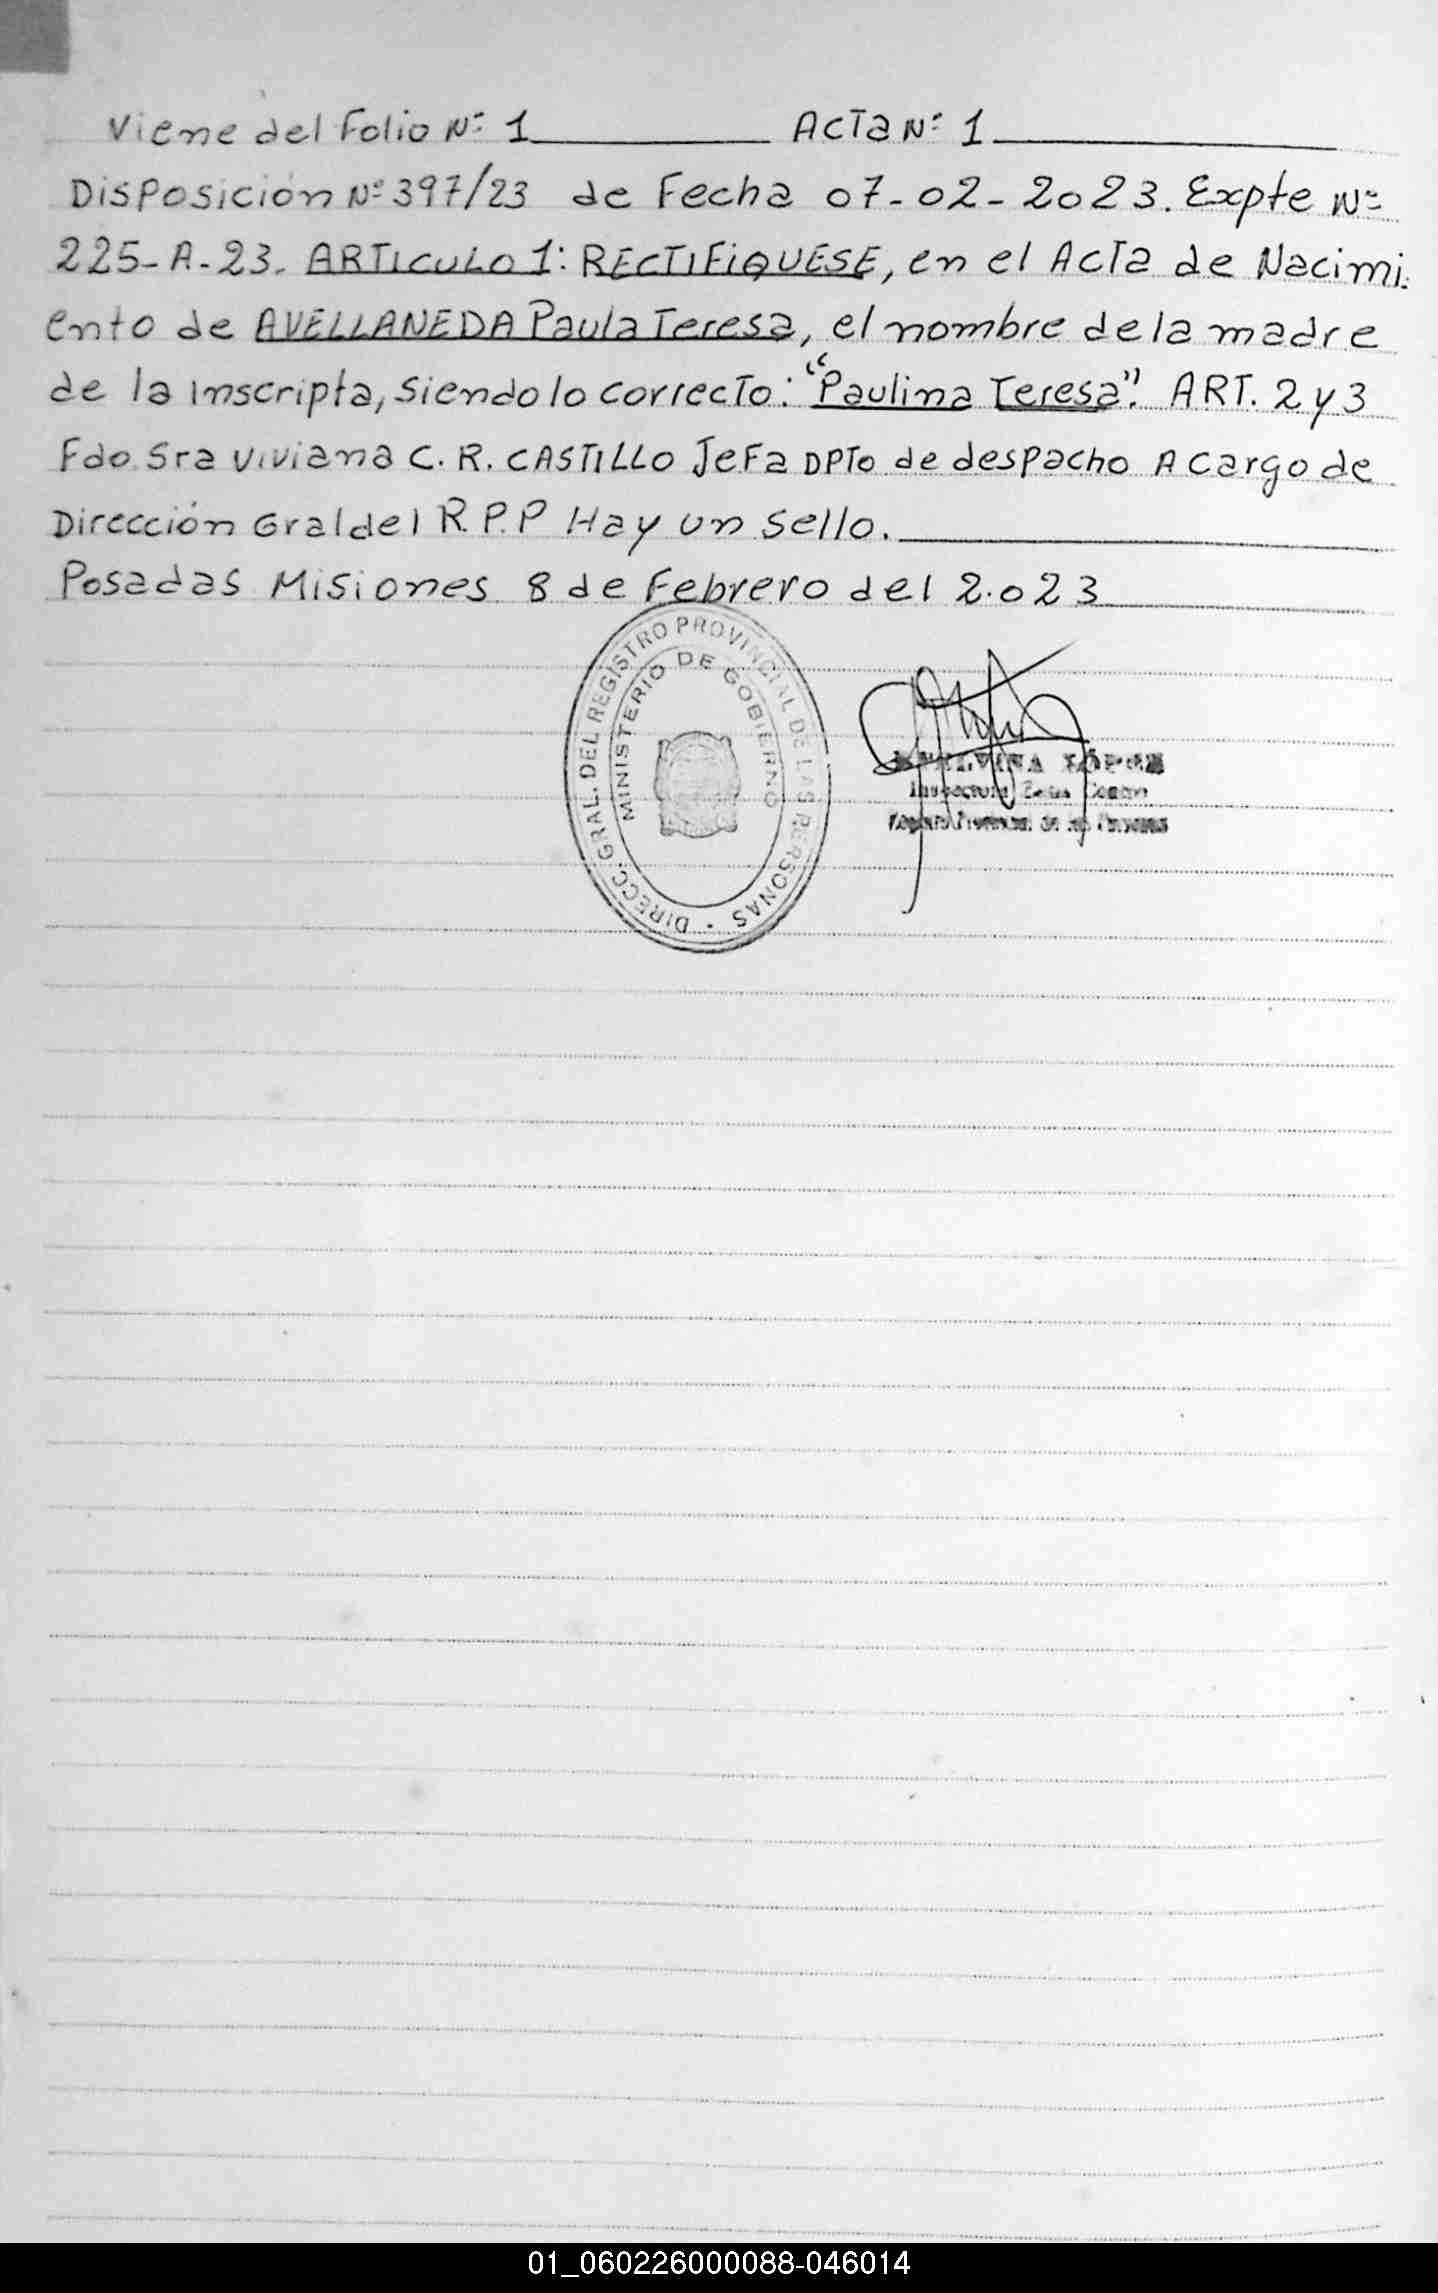 Viene del Folio N: 1 Acta N: 1
Disposición N: 397/23 de Fecha 07-02-2023. Expte N:
225-A-23. ARTICULO 1: RECTIFIQUESE, en el Acta de Nacimi
ento de AVELLANEDA Paula Teresa, el nombre de la madre
de la inscripta, siendo lo correcto: "Paulina Teresa". ART. 2 y 3
Fdo. Sra Viviana C. R. CASTILLO Jefa DPTO de despacho A cargo de
Dirección Gral del R.P.P Hay un sello.
Posadas Misiones 8 de Febrero del 2.023
DIRECC. GRAL. DEL REGISTRO PROVINCIAL DE LAS PERSONAS
MINISTERIO DE GOBIERNO
01_060226000088-046014